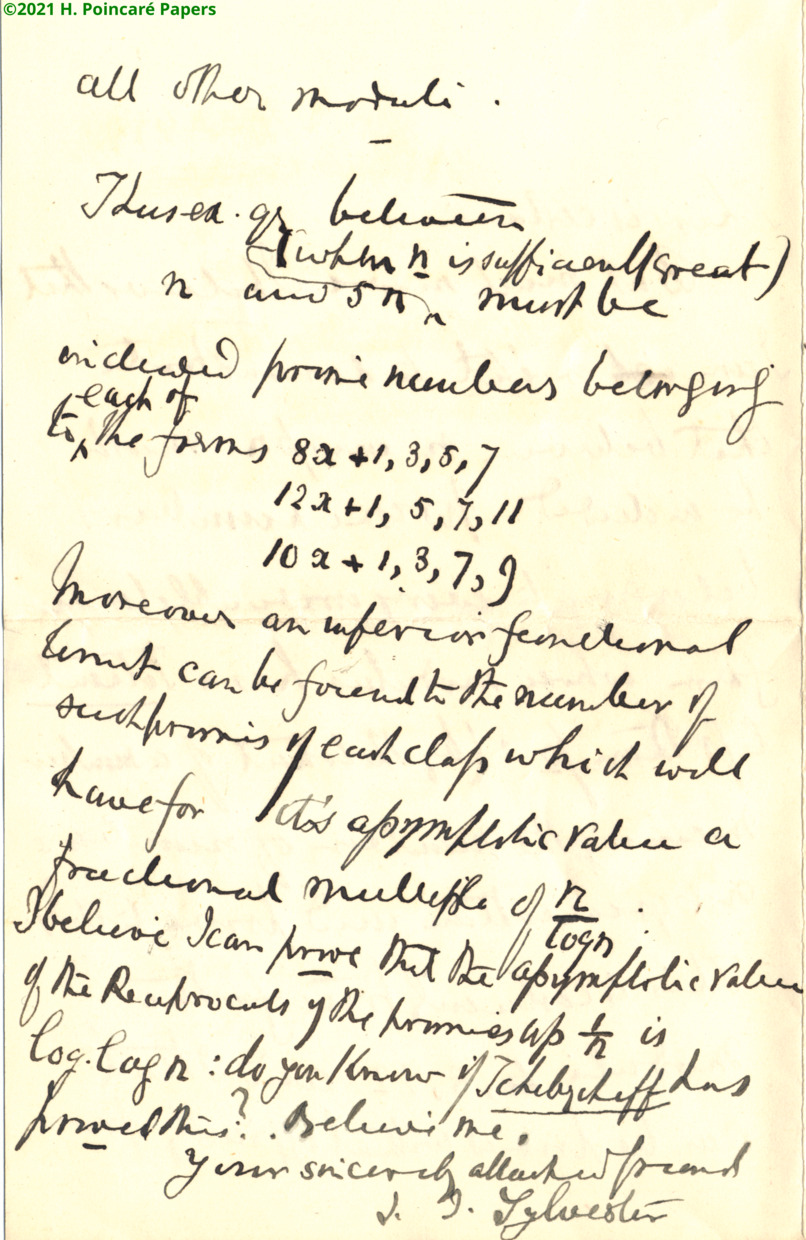 ©2021 H. Poincaré Papers
all other moduli.
Thus ex. gr between
(when n is sufficiently great)
n and 5n, must be
included prime numbers belonging
each of
to the forms 8x+1, 3, 5, 7
12x+1, 5, 7, 11
10x+1, 3, 7, 9
Moreover an inferior functional
limit can be found to the number of
such primes of each class which will
have for it's asymptotic value a
fractional multiple of n/log n.
I believe I can prove that the asymptotic value
of the Reciprocals of the primes up 1/n is
log.log n : do you know if Tchebycheff has
proved this? . Believe me.
Your sincerely attached friend
J. J. Sylvester